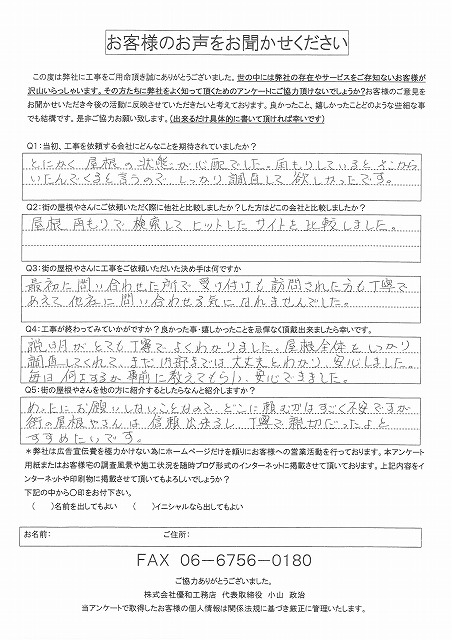 お客様のお声をお聞かせください
この度は弊社に工事をご用命頂き誠にありがとうございました。世の中には弊社の存在やサービスをご存知ないお客様が
沢山いらっしゃいます。その方たちに弊社をよく知って頂くためのアンケートにご協力頂けないでしょうか?お客様のご意見を
お聞かせいただき今後の活動に反映させていただきたいと考えております。良かったこと、嬉しかったことどのような些細な事
でも結構です。是非ご協力お願い致します。(出来るだけ具体的に書いて頂ければ幸いです)
Q1:当初、工事を依頼する会社にどんなことを期待されていましたか?
とにかく屋根の状態が心配でした。雨もりしているとそこから
いたんでくると言うので しっかり調査して欲しかったです。
Q2:街の屋根やさんにご依頼いただく際に他社と比較しましたか?した方はどこの会社と比較しましたか?
屋根 雨もりで検索してヒットしたサイトを比較しました。
Q3:街の屋根やさんに工事をご依頼いただいた決め手は何ですか
最初に問い合わせた所で受け付けも訪問された方も丁寧で
あえて他社に問い合わせる気になれませんでした。
Q4:工事が終わってみていかがですか?良かった事・嬉しかったことを忌憚なく頂戴出来ましたら幸いです。
説明がとても丁寧でよくわかりました。屋根全体をしっかり
調査してくれて、まだ内部までは大丈夫とわかり安心しました。
毎日何をするか事前に教えてもらい、安心できました。
Q5:街の屋根やさんを他の方に紹介するとしたらなんと紹介しますか?
めったにお願いしないことなので、どこに頼むかはすごく不安ですが
街の屋根やさんは信頼出来るし、丁寧で親切だったよと
すすめたいです。
*弊社は広告宣伝費を極力かけない為にホームページだけを頼りにお客様への営業活動を行っております。本アンケート
用紙またはお客様宅の調査風景や施工状況を随時ブログ形式のインターネットに掲載させて頂いております。上記内容をイ
ンターネットや印刷物に掲載させて頂いてもよろしいでしょうか?
下記の中から〇印をお付下さい。
( )名前を出してもよい ( )イニシャルなら出してもよい
お名前: ご住所:
FAX 06-6756-0180
ご協力ありがとうございました。
株式会社優和工務店 代表取締役 小山 政治
当アンケートで取得したお客様の個人情報は関係法規に基づき厳正に管理いたします。